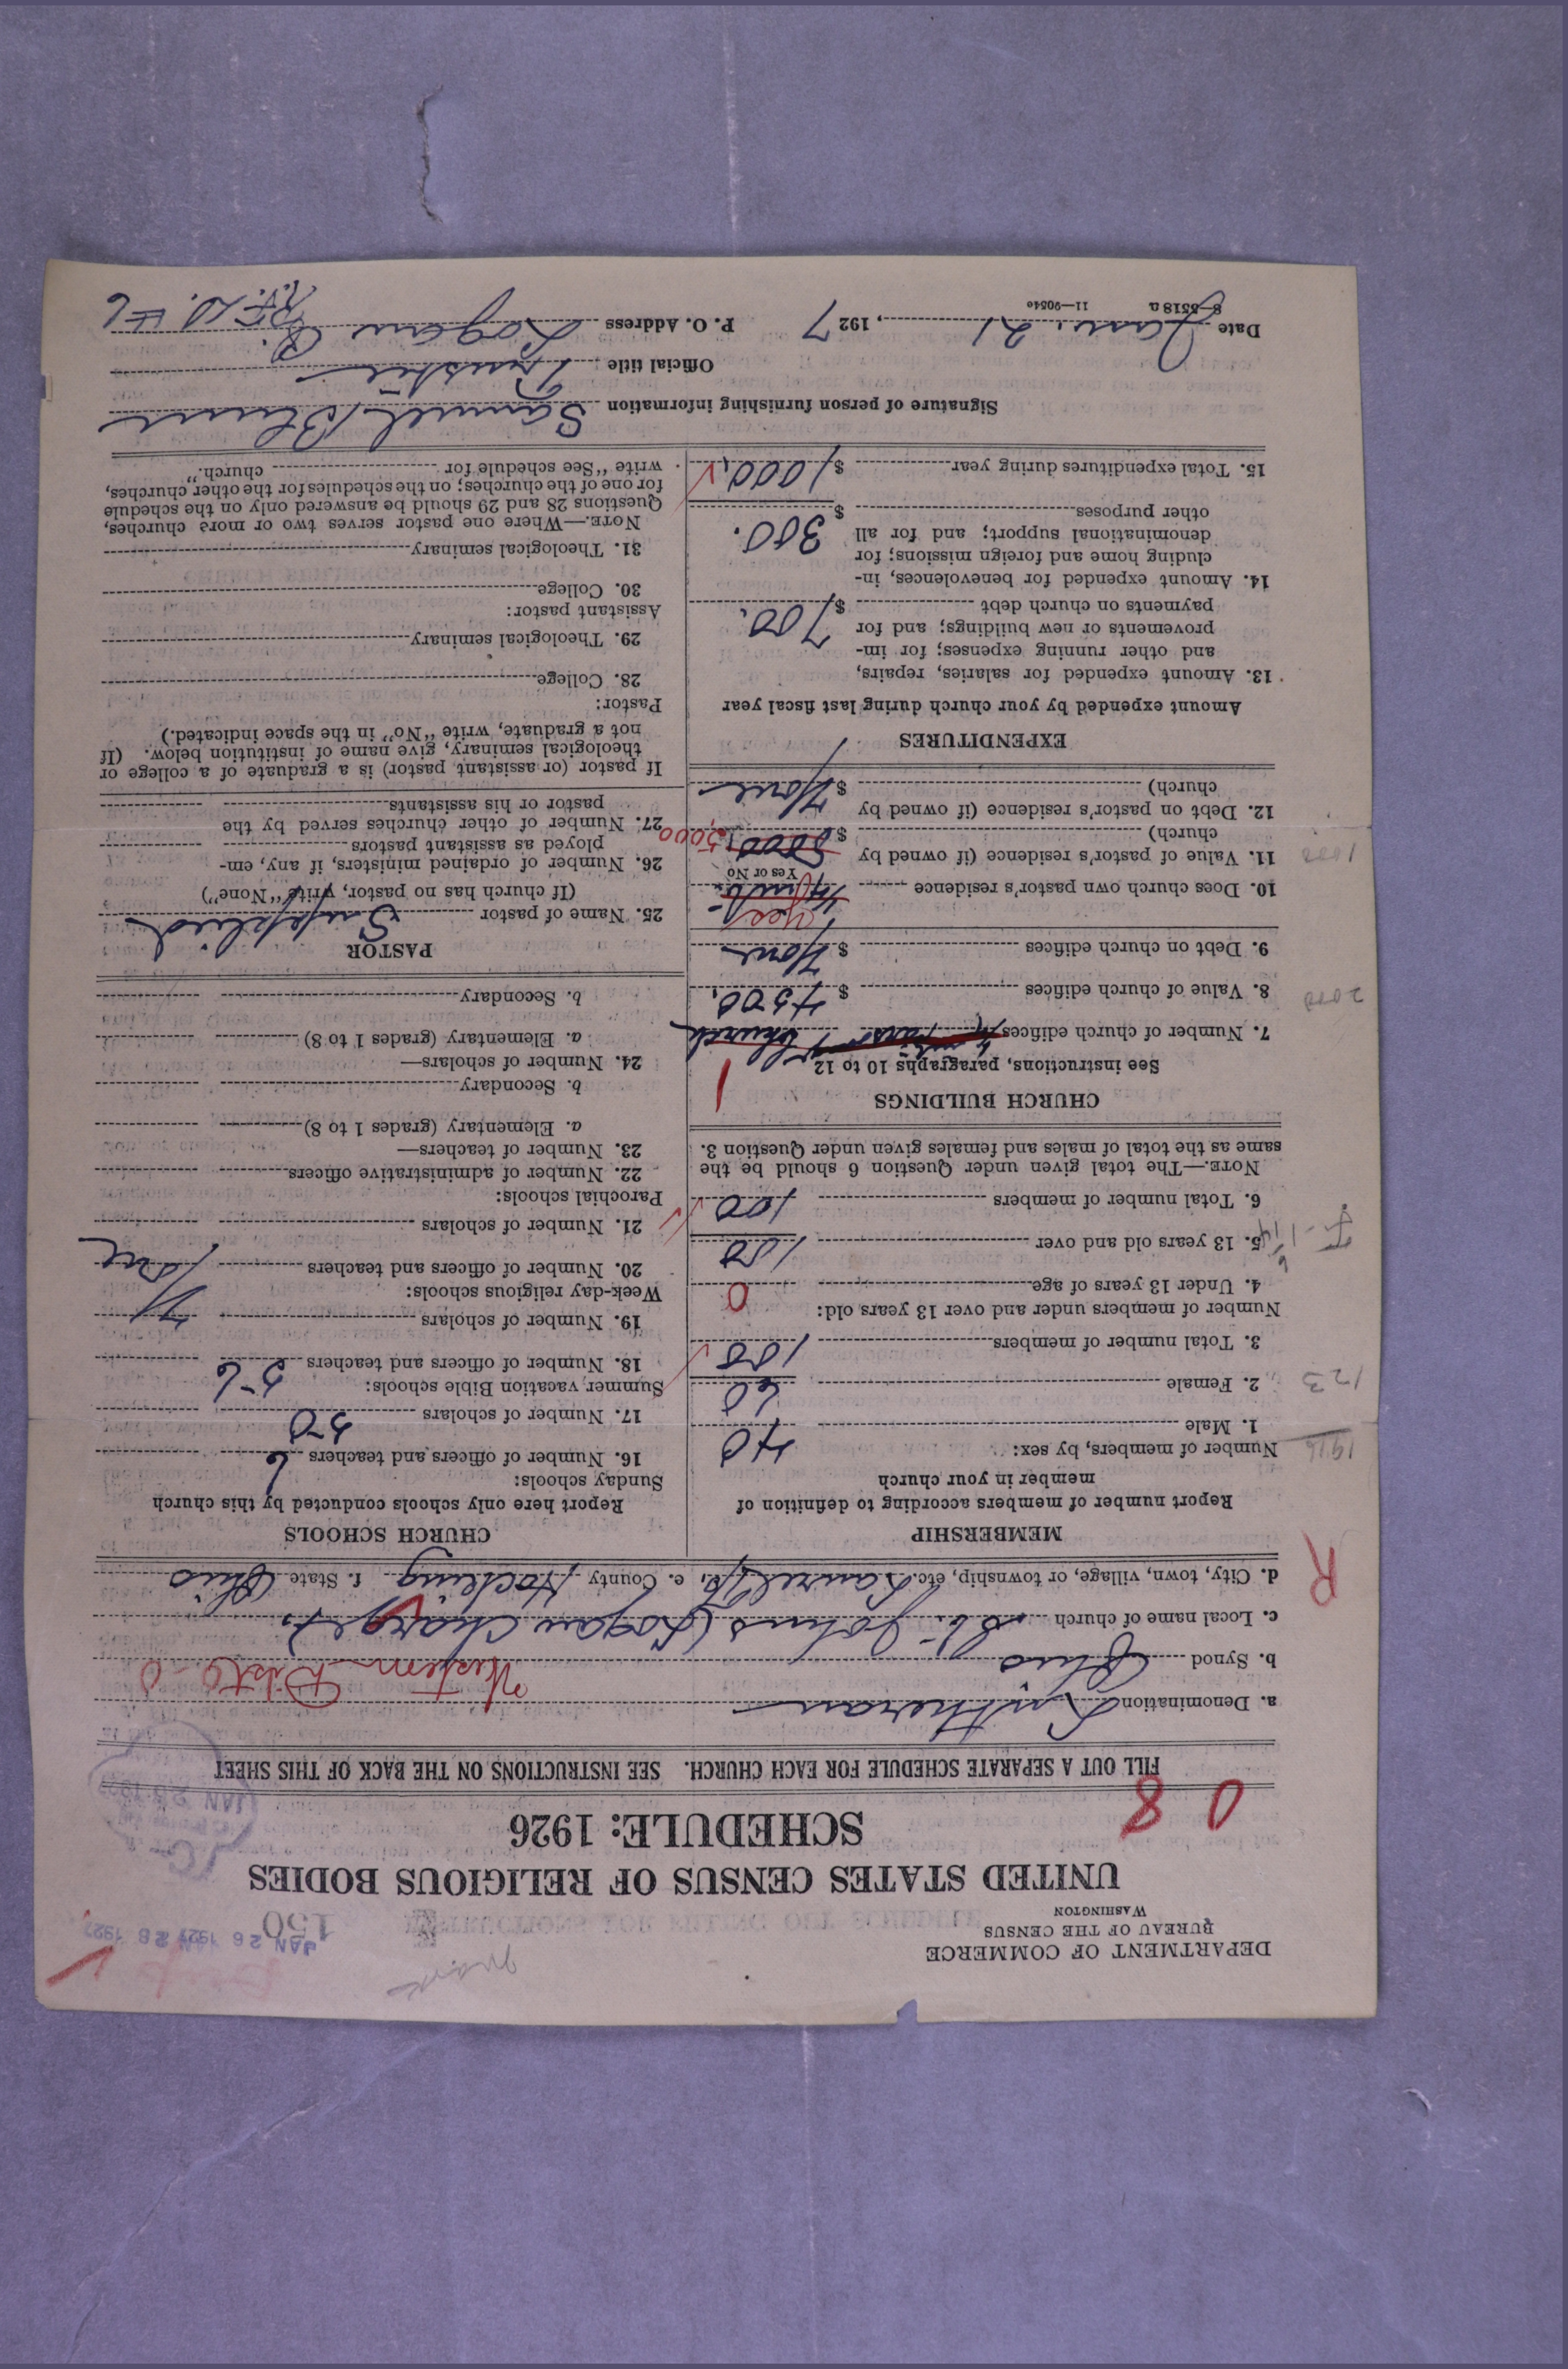 DEPARTMENT OF COMMERCE
BUREAU OF THE CENSUS
WASHINGTON
150
JAN 26 1927 JAN 28 1927
UNITED STATES CENSUS OF RELIGIOUS BODIES
SCHEDULE: 1926
0 8
FILL OUT A SEPARATE SCHEDULE FOR EACH CHURCH. SEE INSTRUCTIONS ON THE BACK OF THIS SHEET
a. Denomination Lutheran
b. Synod Ohio Western Dist O
c. Local name of church St. Johns (Logan Charge)
d. City, town, village, or township, etc. Laurel Tp., e. County Hocking f. State Ohio
R
MEMBERSHIP
Report number of members according to definition of
member in your church
Number of members, by sex:
1916
1. Male 40
2. Female 60
123
3. Total number of members 100
Number of members under and over 13 years old:
4. Under 13 years of age 0
5. 13 years old and over 100
6. Total number of members 100
NOTE.—The total given under Question 6 should be the
same as the total of males and females given under Question 3.
CHURCH BUILDINGS
See instructions, paragraphs 10 to 12
1
7. Number of church edifices Church
8. Value of church edifices $ 4500.
2000
9. Debt on church edifices $ None
yes
10. Does church own pastor's residence
Yes or No
11. Value of pastor's residence (if owned by
church) $ 5000. 5,000
1000
12. Debt on pastor's residence (if owned by
church) $ None
EXPENDITURES
Amount expended by your church during last fiscal year
13. Amount expended for salaries, repairs,
and other running expenses; for im-
provements or new buildings; and for
payments on church debt $ 700.
14. Amount expended for benevolences, in-
cluding home and foreign missions; for
denominational support; and for all
other purposes $ 300.
15. Total expenditures during year $ 1000.
CHURCH SCHOOLS
Report here only schools conducted by this church
Sunday schools:
16. Number of officers and teachers 6
17. Number of scholars 50
Summer vacation Bible schools: 56
18. Number of officers and teachers
19. Number of scholars
Week-day religious schools:
20. Number of officers and teachers None
21. Number of scholars
Parochial schools:
22. Number of administrative officers
23. Number of teachers—
a. Elementary (grades 1 to 8)
b. Secondary
24. Number of scholars—
a. Elementary (grades 1 to 8)
b. Secondary
PASTOR
25. Name of pastor Supplied
(If church has no pastor, write "None")
26. Number of ordained ministers, if any, em-
ployed as assistant pastors
27. Number of other churches served by the
pastor or his assistants
If pastor (or assistant pastor) is a graduate of a college or
theological seminary, give name of institution below. (If
not a graduate, write "No" in the space indicated.)
Pastor:
28. College
29. Theological seminary
Assistant pastor:
30. College
31. Theological seminary
NOTE.—Where one pastor serves two or more churches,
Questions 28 and 29 should be answered only on the schedule
for one of the churches; on the schedules for the other churches,
write "See schedule for church."
Signature of person furnishing information Samuel
Official title Trustee
Date Jan. 21, 1927 P. O. Address Logan O.
R.F.D. #6
8—5518a 11—9054c